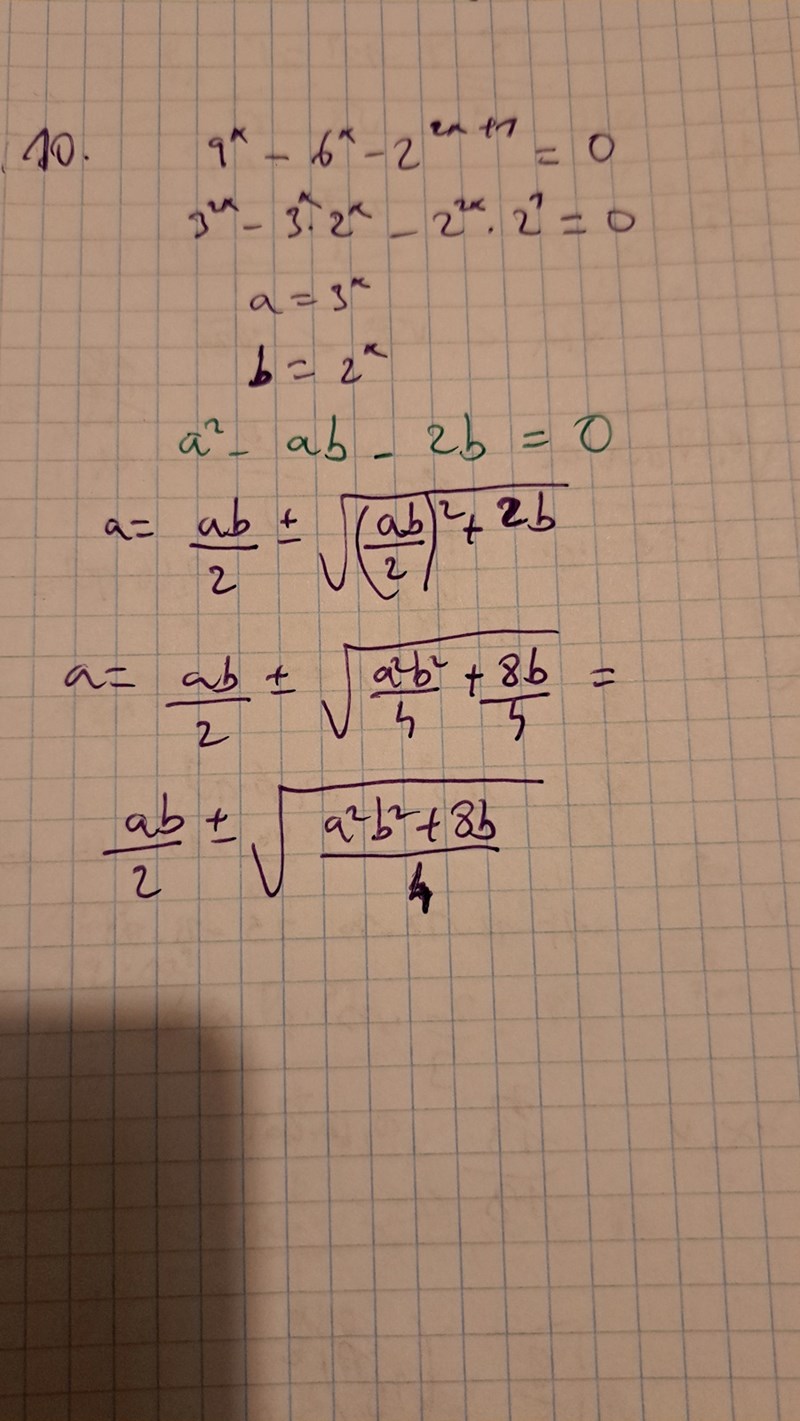 10. 9^x - 6^x - 2^(2x+1) = 0
3^(2x) - 3^x · 2^x - 2^(2x) · 2^1 = 0
a = 3^x
b = 2^x
a² - ab - 2b = 0
a = ab/2 ± √((ab/2)² + 2b)
a = ab/2 ± √(a²b²/4 + 8b/4) =
ab/2 ± √((a²b² + 8b)/4)